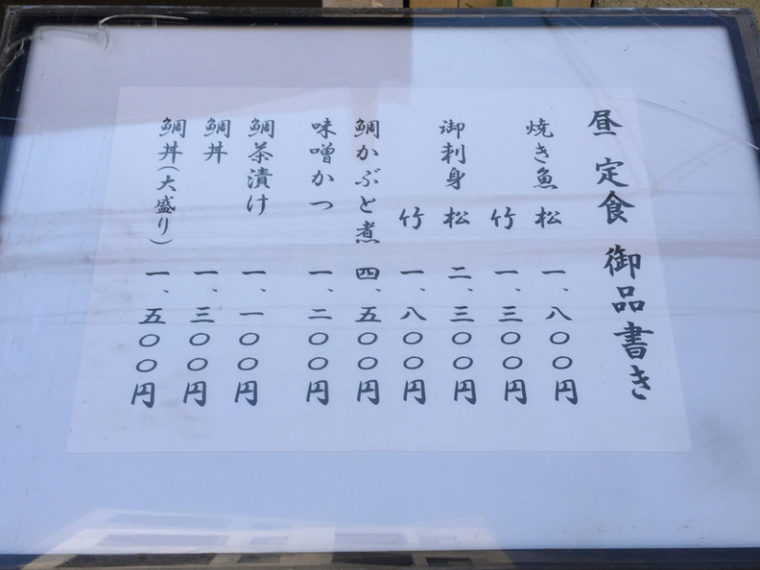 昼 定食 御品書き
焼き魚 松 一、八〇〇円
竹 一、三〇〇円
御刺身 松 二、三〇〇円
竹 一、八〇〇円
鯛かぶと煮 四、五〇〇円
味噌かつ 一、二〇〇円
鯛茶漬け 一、一〇〇円
鯛丼 一、三〇〇円
鯛丼(大盛り) 一、五〇〇円